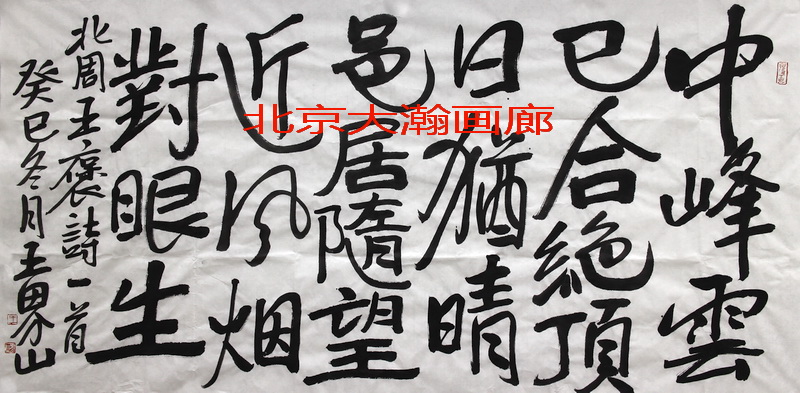 中峰雲
已合絶頂
日猶晴
邑居隨望
近风烟
對眼生
北周王褒詩一首
癸巳冬月王界山
北京大瀚画廊